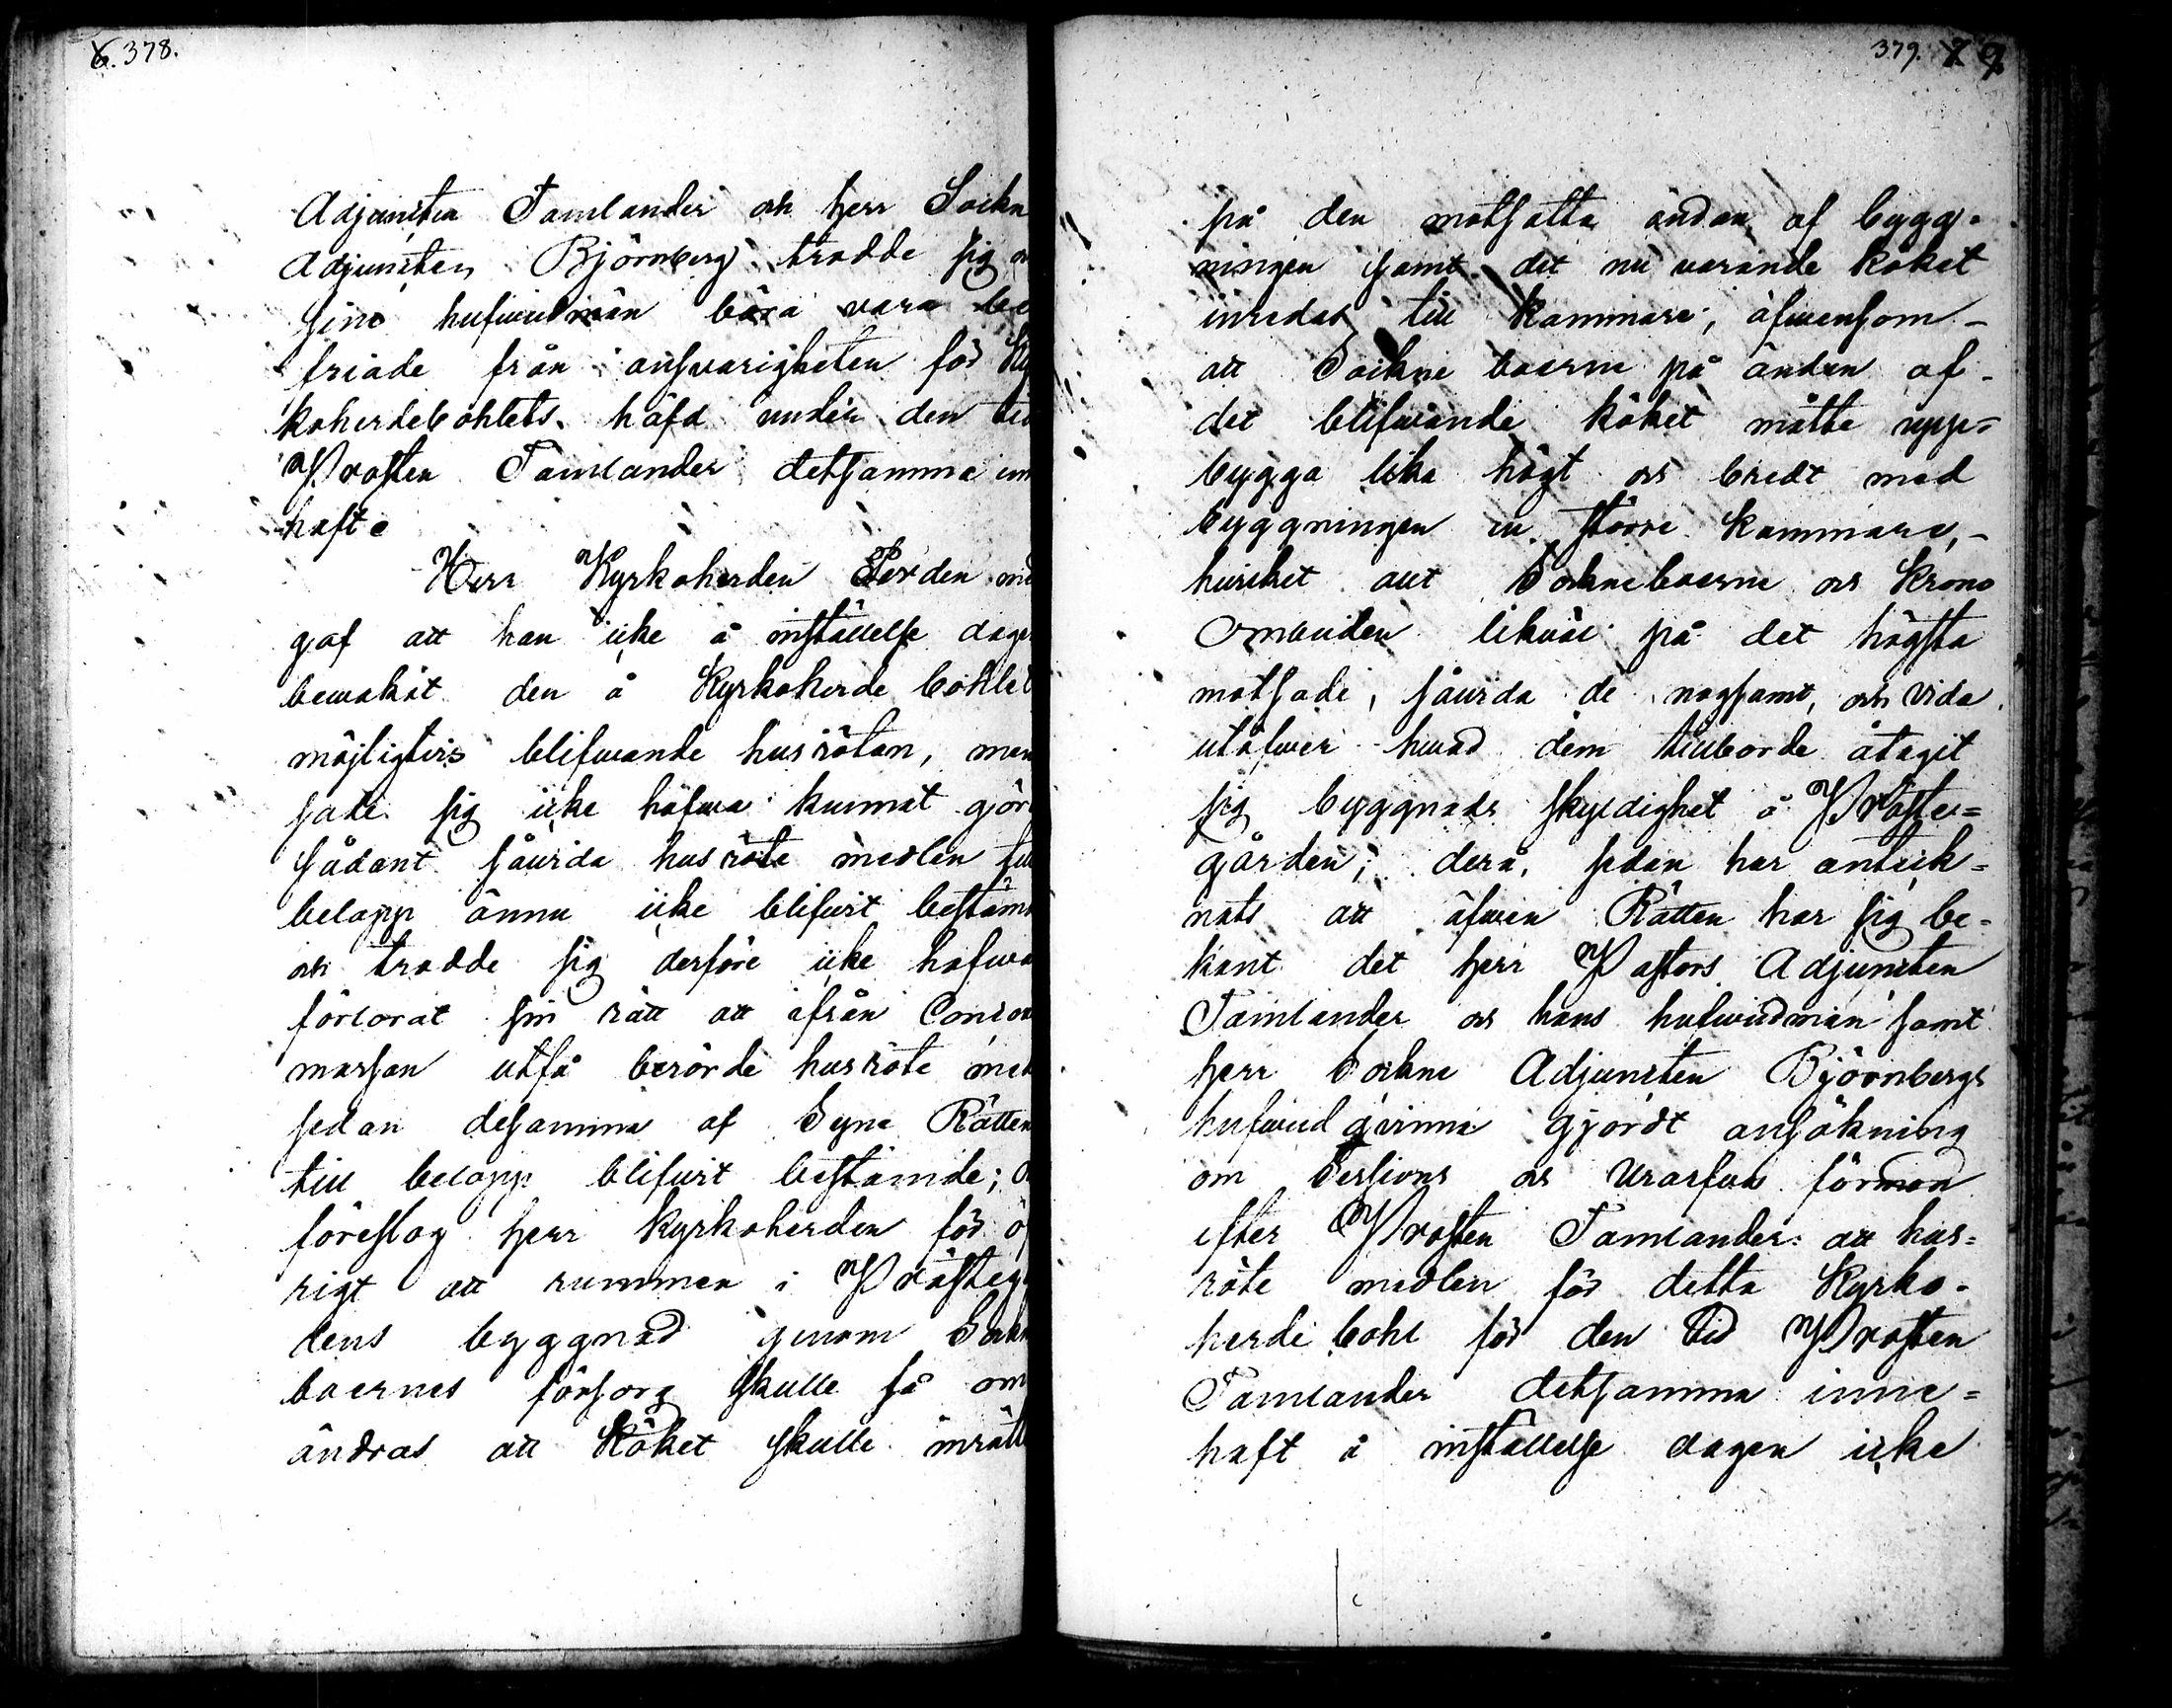 6. 378.
Adjuncten Tamlander och herr Sockn
Adjuncten Björnberg trodde sig o
sine hufwudmän böra vara be
friade från answarigheten för Ky
koherdebohlets häfd under den tid
Prosten Tamlander detsamma inn
haft.
Herr Kyrkoherden Ferden and
gaf att han icke å inställelse dage
bewakat den å Kyrkoherde bohlet
möjligtvis blifwande husrötan, men
sade sig icke hafwa kunnat göra
sådant såvida husröte medlen till
belopp ännu icke blifwit bestämt
och trodde sig derföre icke hafwa
förlorat sin rätt att ifrån Concur
massan utfå berörde husröte med
sedan desamma af Syne Rätten
till belopp blifwit bestämde; o
föreslog herr Kyrkoherden för öf
rigt att rummen i Prästegå
dens byggnad genom Sock
boernes försorg skulle få om
ändras att Köket skulle inrätt
379.
på den motsatta ändan af bygg-
ningen samt det nu varande köket
inredas till Kammare, äfwensom
att Sockne boerne på ändan af
det blifwande köket måtte upp=
bygga lika högt och bredt med
byggningen en större Kammare,
hwilket allt Sockneboerne och Krono
Ombuden likväl på det högsta
motsade, såvida de nogsamt och vida
utöfwer hwad dem tillborde åtagit
sig byggnads skyldighet å Präste=
gården; derå, sedan har anteck=
nats att äfwen Rätten har sig be=
kant det herr Pastors Adjuncten
Tamlander och hans hufwudmän samt
herr Sockne Adjuncten Björnbergs
hufwud qvinna gjordt ansökning
om Cessions och Urarfwa förmon
efter Prosten Tamlander att hus=
röte medlen för detta Kyrko-
herde bohl för den tid Prosten
Tamlander detsamma inne=
haft å inställelse dagen icke